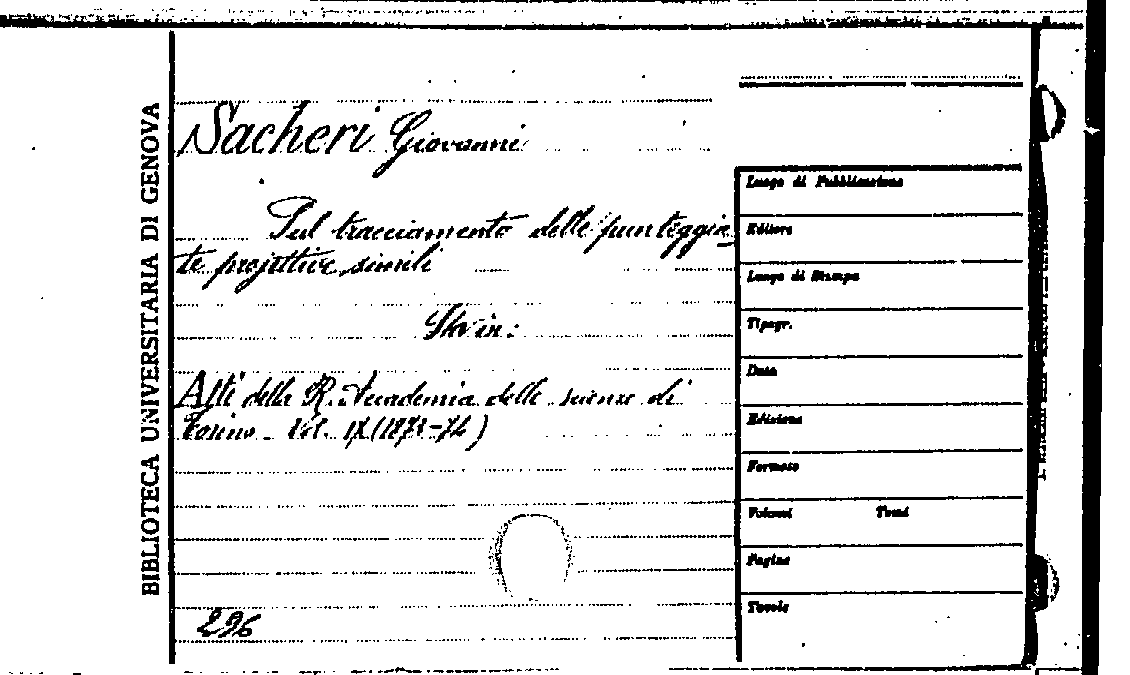 BIBLIOTECA UNIVERSITARIA DI GENOVA
Sacheri Giovanni
Sul tracciamento delle punteggia
te projettive simili
Sta in:
Atti della R. Accademia delle scienze di
Torino. Vol. IX (1873-74)
296
Luogo di Pubblicazione
Editore
Luogo di Stampa
Tipogr.
Data
Edizione
Formato
Volumi Tomi
Pagine
Tavole